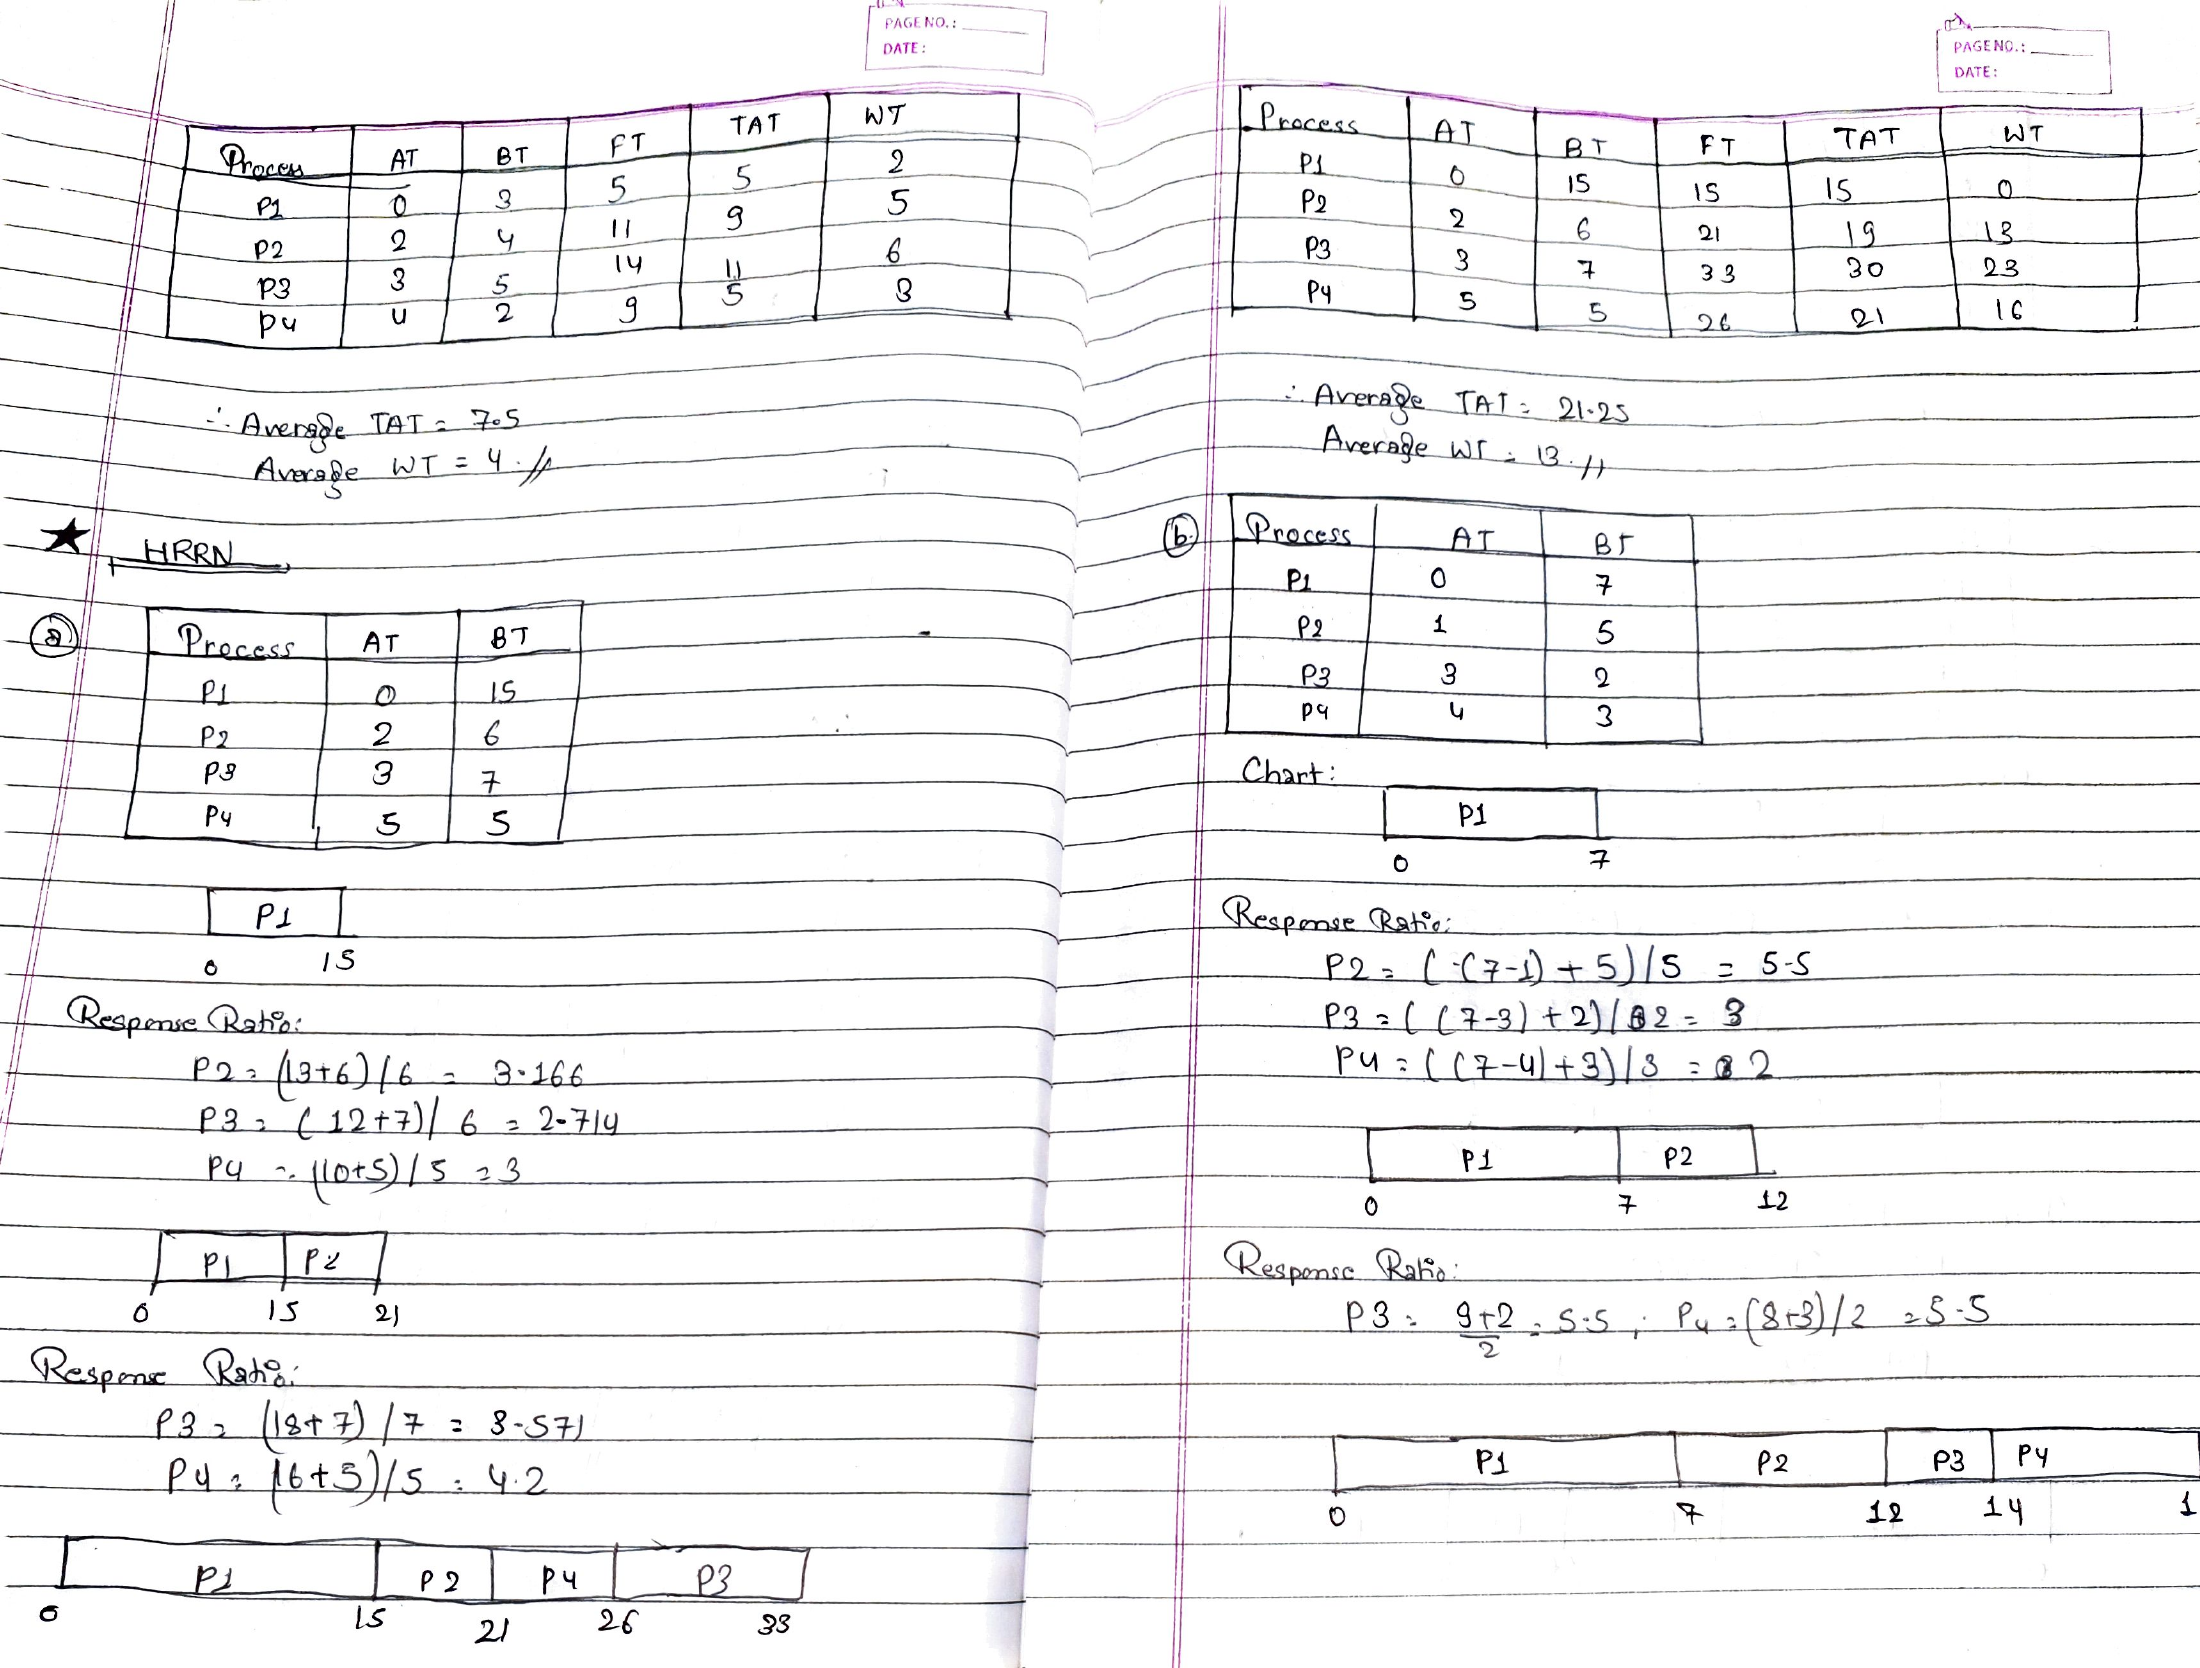 PAGE NO.:
DATE:
Process AT BT FT TAT WT
P1 0 3 5 5 2
P2 2 4 11 9 5
P3 3 5 14 11 6
P4 4 2 9 5 3
∴ Average TAT = 7.5
Average WT = 4.//
★ HRRN
(a)
Process AT BT
P1 0 15
P2 2 6
P3 3 7
P4 5 5
P1
0 15
Response Ratio:
P2 = (13+6)/6 = 3.166
P3 = (12+7)/6 = 2.714
P4 = (10+5)/5 = 3
P1 P2
0 15 21
Response Ratio:
P3 = (18+7)/7 = 3.571
P4 = (16+5)/5 = 4.2
P1 P2 P4 P3
0 15 21 26 33
PAGE NO.:
DATE:
Process AT BT FT TAT WT
P1 0 15 15 15 0
P2 2 6 21 19 13
P3 3 7 33 30 23
P4 5 5 26 21 16
∴ Average TAT = 21.25
Average WT = 13.//
(b.)
Process AT BT
P1 0 7
P2 1 5
P3 3 2
P4 4 3
Chart:
P1
0 7
Response Ratio:
P2 = ((7-1)+5)/5 = 5.5
P3 = ((7-3)+2)/2 = 3
P4 = ((7-4)+3)/3 = 2
P1 P2
0 7 12
Response Ratio:
P3 = 9+2/2 = 5.5, P4 = (8+3)/2 = 5.5
P1 P2 P3 P4
0 7 12 14 1